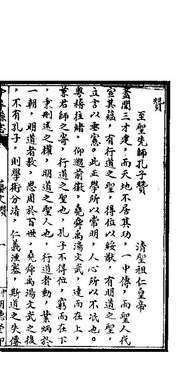 贊
至聖先師孔子贊 清聖祖仁皇帝
蓋聞三才建而天地不居其功一中傳而聖人代
宣其蘊有行道之聖得位以綏猷有明道之聖
立言以垂憲此正學所以常明人心所以不泯也
粵稽往緒仰溯前徽堯舜禹湯文武達而在上
兼君師之寄行道之聖人也孔子不得位窮而在下
秉刪述之權明道之聖人也行道者勳業炳於
一朝明道者教思周於百世堯舜禹湯文武之後
不有孔子則學術紛淆仁義湮塞斯道之失傳